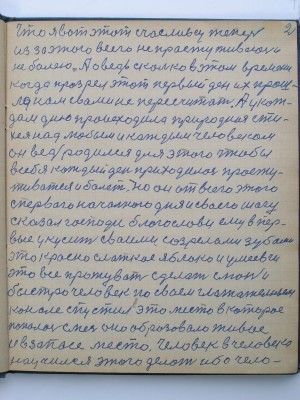 2
Что я вот этот счасливец теперь
из за этого всего не простуживаюсь и
не болею. А ведь сколько в этом времени
когда прозрел этот первый ден их прош-
ло нам самим не пересчитат. А у каж-
дым днё происходила природная сти-
хея над любым и каждым человеком
он вед родился для этого чтобы
всебя каждый ден приходилос просту-
живатся и болет. Но он от всего этого
спервого началного дня и своего шагу
сказал господи благослови ему впер-
вые укусит своими созрелами зубами
это красно слаткое яблоко и умеючи
это все прожуват сделат слюн и
быстро человек по своем глотателному
канале спустил это место в которое
попалос смеш оно образовало живое
и взапасе место. Человек в человека
научился этого делат ибо чело-